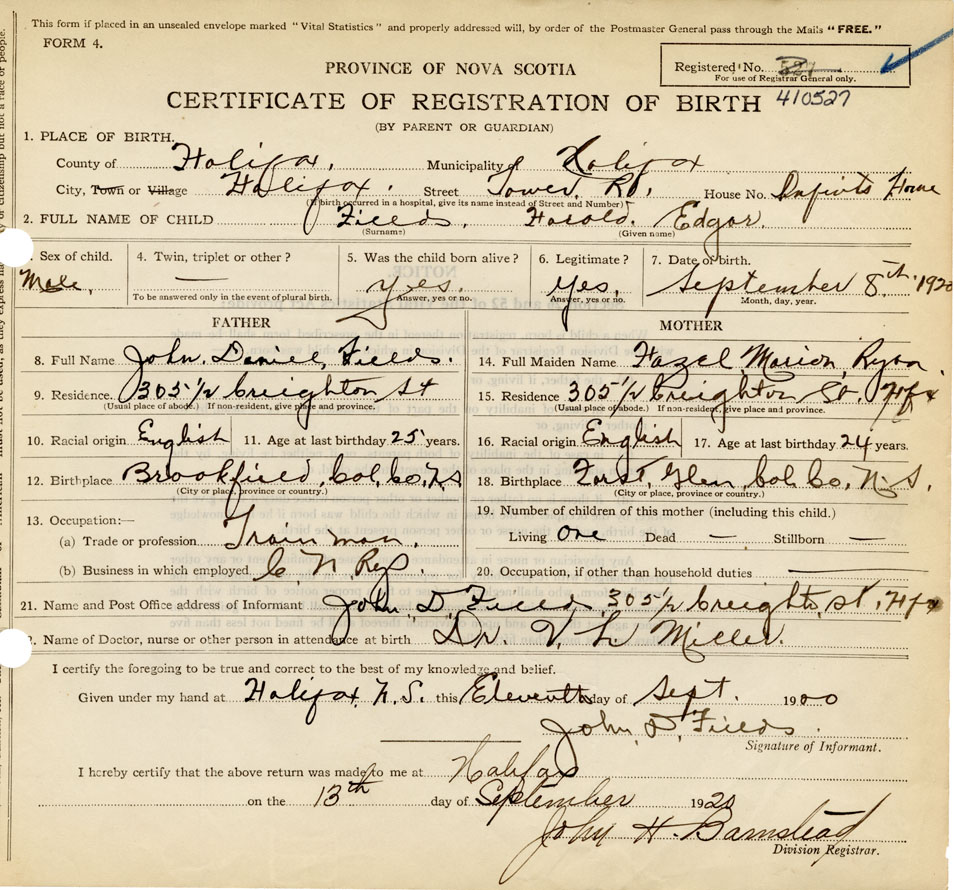 This form if placed in an unsealed envelope marked "Vital Statistics" and properly addressed will, by order of the Postmaster General pass through the Mails "FREE."
FORM 4.
Registered No. 527
For use of Registrar General only.
410527
PROVINCE OF NOVA SCOTIA
CERTIFICATE OF REGISTRATION OF BIRTH
(BY PARENT OR GUARDIAN)
1. PLACE OF BIRTH.
County of Halifax. Municipality of Halifax
City, Town or Village Halifax. Street Tower Rd. House No. Infants Home
(If birth occurred in a hospital, give its name instead of Street and Number)
2. FULL NAME OF CHILD Fields, Harold. Edgar.
(Surname) (Given name)
Sex of child. Male.
4. Twin, triplet or other? —
To be answered only in the event of plural birth.
5. Was the child born alive? yes.
Answer, yes or no.
6. Legitimate? yes.
Answer, yes or no.
7. Date of birth. September 8th. 1920
Month, day, year.
FATHER
8. Full Name John. Daniel Fields.
9. Residence. 305 1/2 Creighton St
(Usual place of abode.) If non-resident, give place and province.
10. Racial origin English 11. Age at last birthday 25 years.
12. Birthplace Brookfield, Col. Co. N.S
(City or place, province or country.)
13. Occupation:—
(a) Trade or profession Trainman.
(b) Business in which employed C. N. Rys.
MOTHER
14. Full Maiden Name Hazel Marion Ryan
15. Residence 305 1/2 Creighton St. Hfx
(Usual place of abode.) If non-resident, give place and province.
16. Racial origin English 17. Age at last birthday 24 years.
18. Birthplace Glen Col. Co. N.S.
(City or place, province or country.)
19. Number of children of this mother (including this child.)
Living one Dead — Stillborn —
20. Occupation, if other than household duties —
21. Name and Post Office address of Informant John D Fields 305 1/2 Creighton St. Hfx
Name of Doctor, nurse or other person in attendance at birth Dr. V. L. Miller.
I certify the foregoing to be true and correct to the best of my knowledge and belief.
Given under my hand at Halifax N.S. this Eleventh day of Sept. 19
John. D. Fields.
Signature of Informant.
I hereby certify that the above return was made to me at Halifax
on the 13th day of September 1920
John H. Barnstead
Division Registrar.